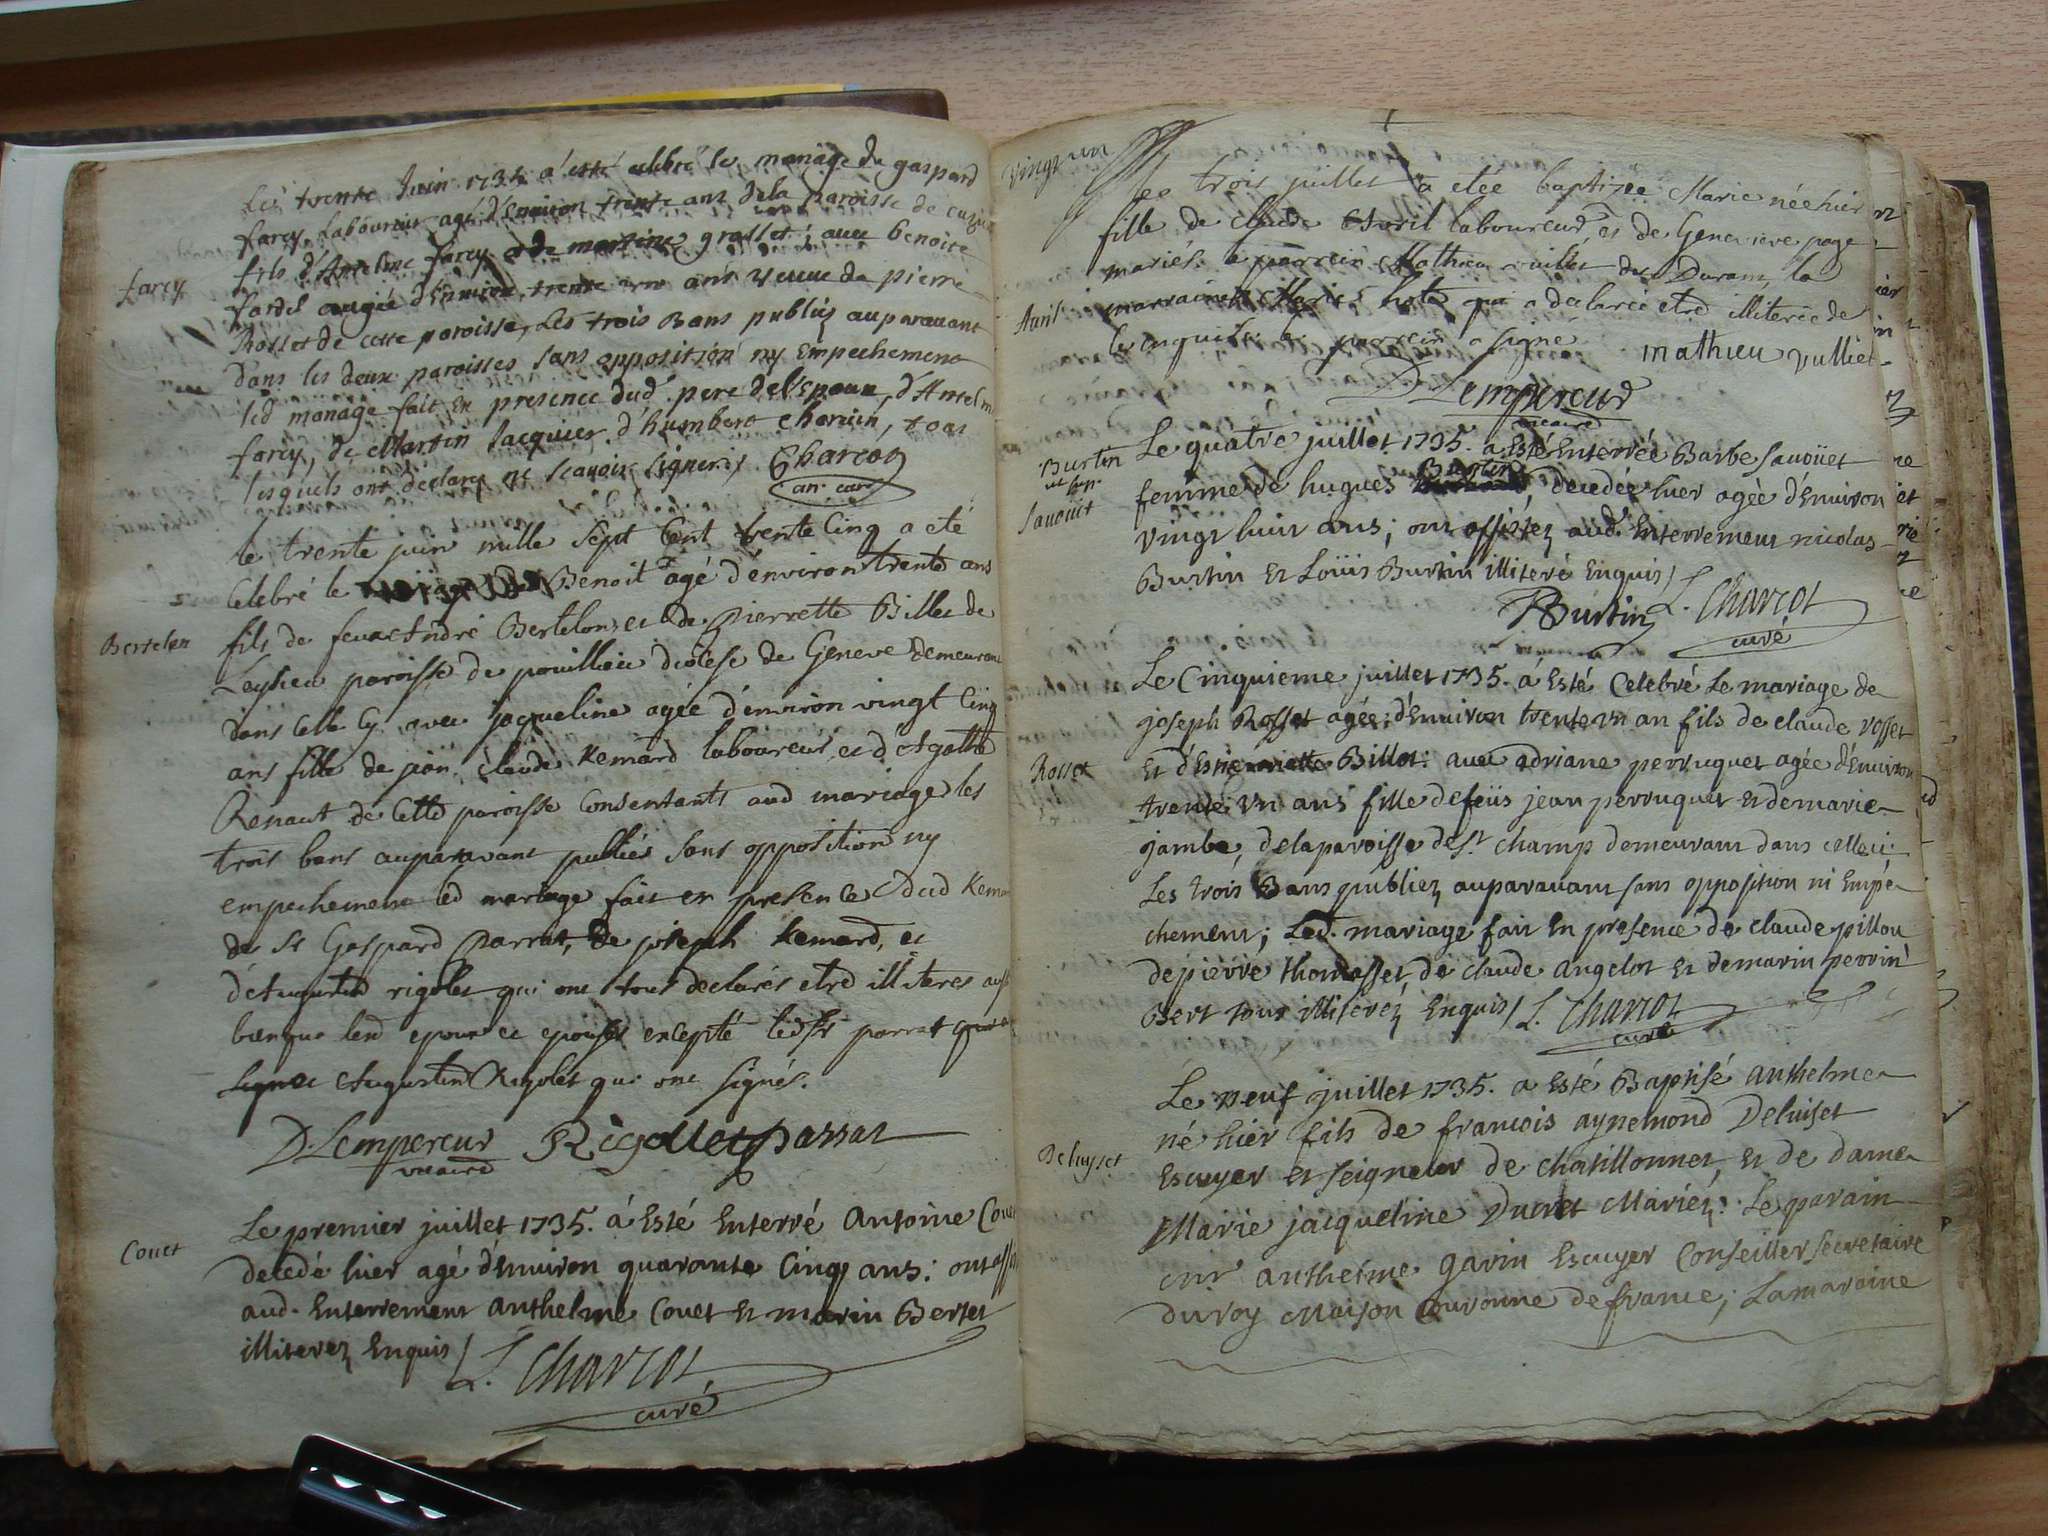 Le trente Juin 1735 a esté celebré le mariage de gaspard
farcy, Laboureur agé d'Environ trente ans dela paroisse de
farcy
fils d'Anselme farcy et de martine grosset; avec benoite
fardel d'Environ trente ans veuve de pierre
Rosset de cette paroisse, Les trois Bans publiez auparavant
dans les deux paroisses sans opposition ny Empechement
led mariage fait En presence dud. pere del'Epoux, d'Antelm
farcy, de Martin Jacquier, d'humbert, tous
lesquels ont declaré ne scavoir signer Charcot
le trente juin mille sept Cent trente Cinq a eté
Celebré le Benoit agé d'environ trente ans
Bertelon
fils de feu André Bertelon, et de Pierrette Billet de
Leysieu paroisse de pouillieu diocese de Geneve demeurant
dans Celle Cy avec jacqueline agée d'environ vingt Cinq
ans fille de Claude Remard laboureur et d'Agathe
Renaut de Cette paroisse Consentants aud mariage les
trois bans auparavant publiés sans opposition ny
empechement led mariage fait en presence Dud
de Sr Gaspard Parrat, de joseph Remard, et
d'Augustin rigolet qui ont tous declarés etre illiteres
bienque led epoux et epouse excepté led Sr parrat
Augustin Rigolet qui ont signés.
D. Lempereur Rigollet parrat
vicaire
Le premier juillet 1735. á Esté Enterré Antoine Couet
Couet
decedé hier agé d'Environ quarante Cinq ans: ont
aud. Enterrement anthelme Couet et marin Bertet
illiterez Enquis / L. Charcot
curé
vingt un
Le trois juillet a etée baptizée Marie née hier
fille de Claude Avril laboureur et de Genevieve page
mariés. le parrein Mathieu vulliet, la
Avril
marraine Marie qui a declarée etre illiterée de
ce enquise le parrein a signé mathieu vulliet
D Lempereur
vicaire
Burtin
Le quatre juillet 1735. a Esté Enterrée Barbe Savoüet
Savouet
femme de hugues Burtin, decedée hier agée d'Environ
vingt huit ans; ont assistez aud. Enterrement nicolas
Burtin et Loüis Burtin illiteré Enquis /
Burtin L. Charcot
curé
Le Cinquieme juillet 1735. á Esté Celebré Le mariage de
joseph Rosset agée d'Environ trente un an fils de claude rosset
Rosset
Et d'Estiennette Billot: avec adriane perruquet agée d'Environ
trente un ans fille defeüs jean perruquet et demarie
jambe, delaparoisse deSt. champ demeurant dans celleci:
Les trois Bans publiez auparavant sans opposition ni Empe
chement; Led. mariage fait En presence de claude pillou
depierre thomasset, de claude angelot et demarin perrin
Bert tous illiterez Enquis / L. Charcot
curé
Le neuf juillet 1735. a Esté Baptisé anthelme
né hier fils de francois aynemond Deluiset
Deluyset
Escuyer et seigneur de chatillonnet, Et de dame
Marie jacqueline Ducret Mariéz: Le parain
anthelme gavin Escuyer Conseiller Secretaire
du roy Maison Couronne defrance; Lamaraine